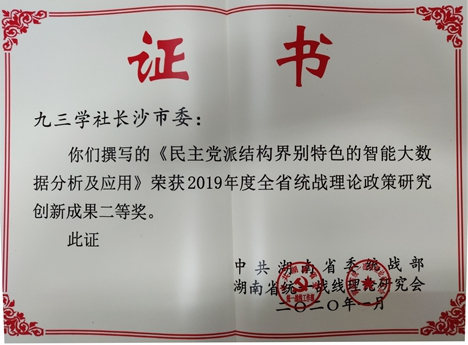 证书
九三学社长沙市委：
你们撰写的《民主党派结构界别特色的智能大数
据分析及应用》荣获2019年度全省统战理论政策研究
创新成果二等奖。
此证
中共湖南省委统战部
湖南省统一战线理论研究会
二〇二〇年一月